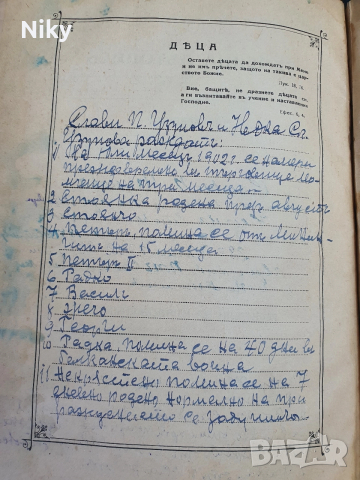 Miky
ДѢЦА
Оставете дѣцата да дохождатъ при Мене
и не имъ прѣчете, защото на такива е цар-
ството Божие.
Лук. 18, 16.
Вие, бащитѣ, не дразнете дѣцата си,
а ги възпитавайте въ учение и наставление
Господне.
Ефес. 6, 4.
Слави П. Узуновъ и Недка Сл.
Узунова раждатъ:
1) На месецъ 1902 г. се намери
преждевременно мо-
мченце на три месеца
2 Стоянка родена през августъ
3 Стойчо
4 Петъръ, помина се отъ
на 15 месеца
5 Петъръ II
6 Радко
7 Василъ
8
9 Георги
10 Радка, помина се на 40 дни в
Балканската война
11 Некръстено, помина се на 7
дневно родено нормално на при
раждането се
bazar.bg